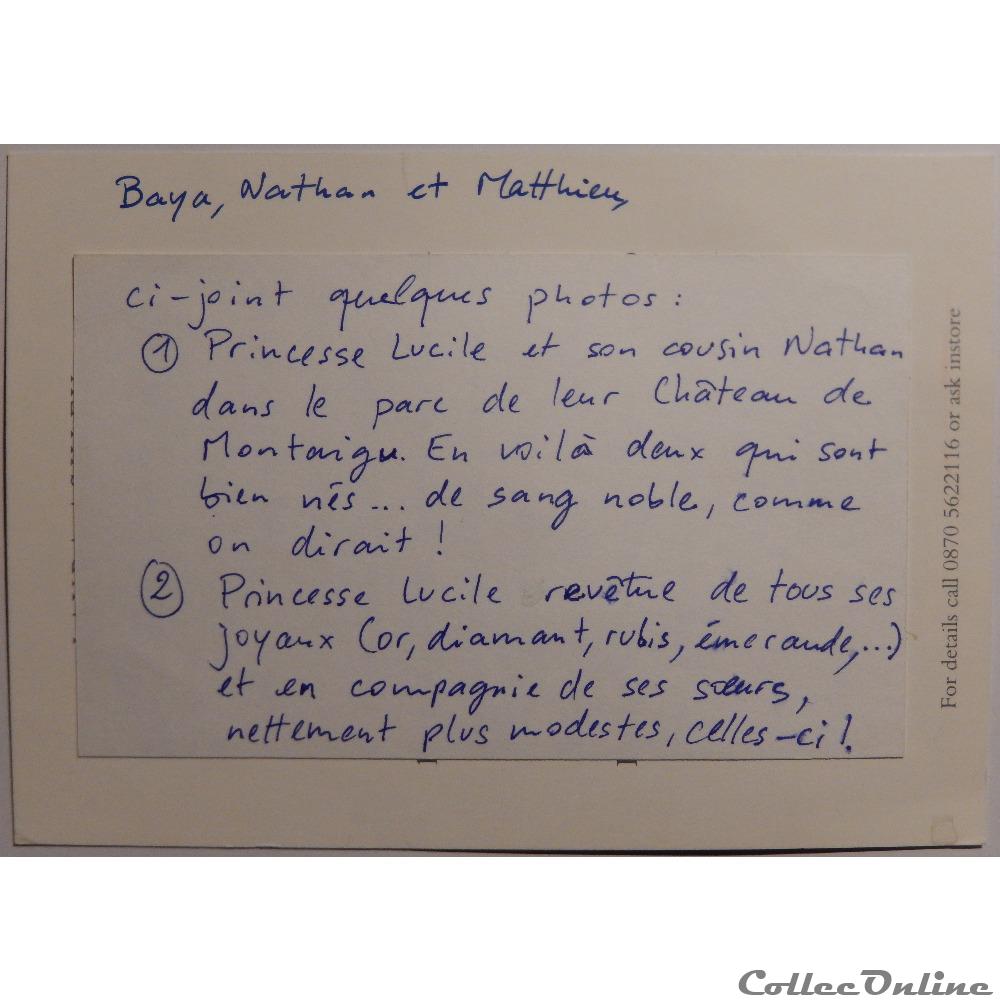 Baya, Nathan et Matthieu,
ci-joint quelques photos :
① Princesse Lucile et son cousin Nathan
dans le parc de leur Château de
Montaigu. En voilà deux qui sont
bien nés... de sang noble, comme
on dirait !
② Princesse Lucile revêtue de tous ses
joyaux (or, diamant, rubis, émeraude,...)
et en compagnie de ses sœurs,
nettement plus modestes, celles-ci !
For details call 0870 5622116 or ask instore
CollecOnline